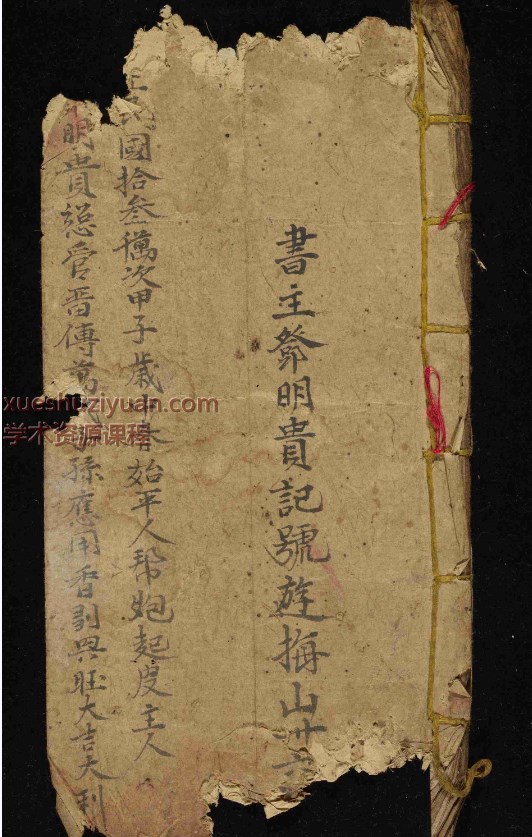 書主鄧明貴記號旋梅山十六
民國拾叁萬次甲子歲中春始平人幫抱起度主人
明貴總管晋傳萬代孫應用香到興旺大吉大利
xueshuziyuan.com
学术资源课程